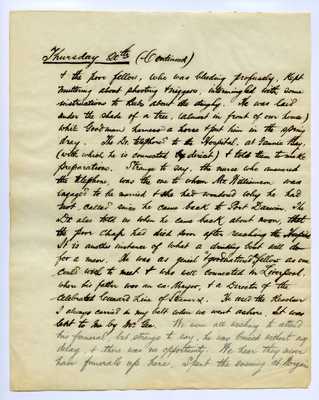 Thursday 20th (Continued)
& the poor fellow, who was bleeding profusely, kept
muttering about shooting & niggers, intermingled with some
instructions to about the dinghy. He was laid
under the shade of a tree, (almost in front of our house)
while Goodman harnessed a horse & put him in the spring
dray. The Dr. telephoned to the Hospital, at Fannie Bay,
(with which he is connected by ) & told them to make
preparations. Strange to say, the nurse who answered
the telephone, was the one to whom Mr. Williamson was
engaged to be married & she had wondered why he had
not called since he came back to Port Darwin. The
Dr. also told us when he came back about noon, that
the poor chap had died soon after reaching the Hospital.
It is another instance of what a drinking bout will do
for a man. He was as genial & goodnatured fellow as one
could wish to meet & was well connected in Liverpool,
where his father was an ex-Mayor, & a Director of the
celebrated Cunard Line of Steamers. He used the Revolver
I always carried in my belt when we went ashore. It was
lent to me by Mr. Geo. We were all wishing to attend
his funeral, but strange to say, he was buried without any
delay, & there was no opportunity. We hear they never
have funerals up here. Spent the evening at